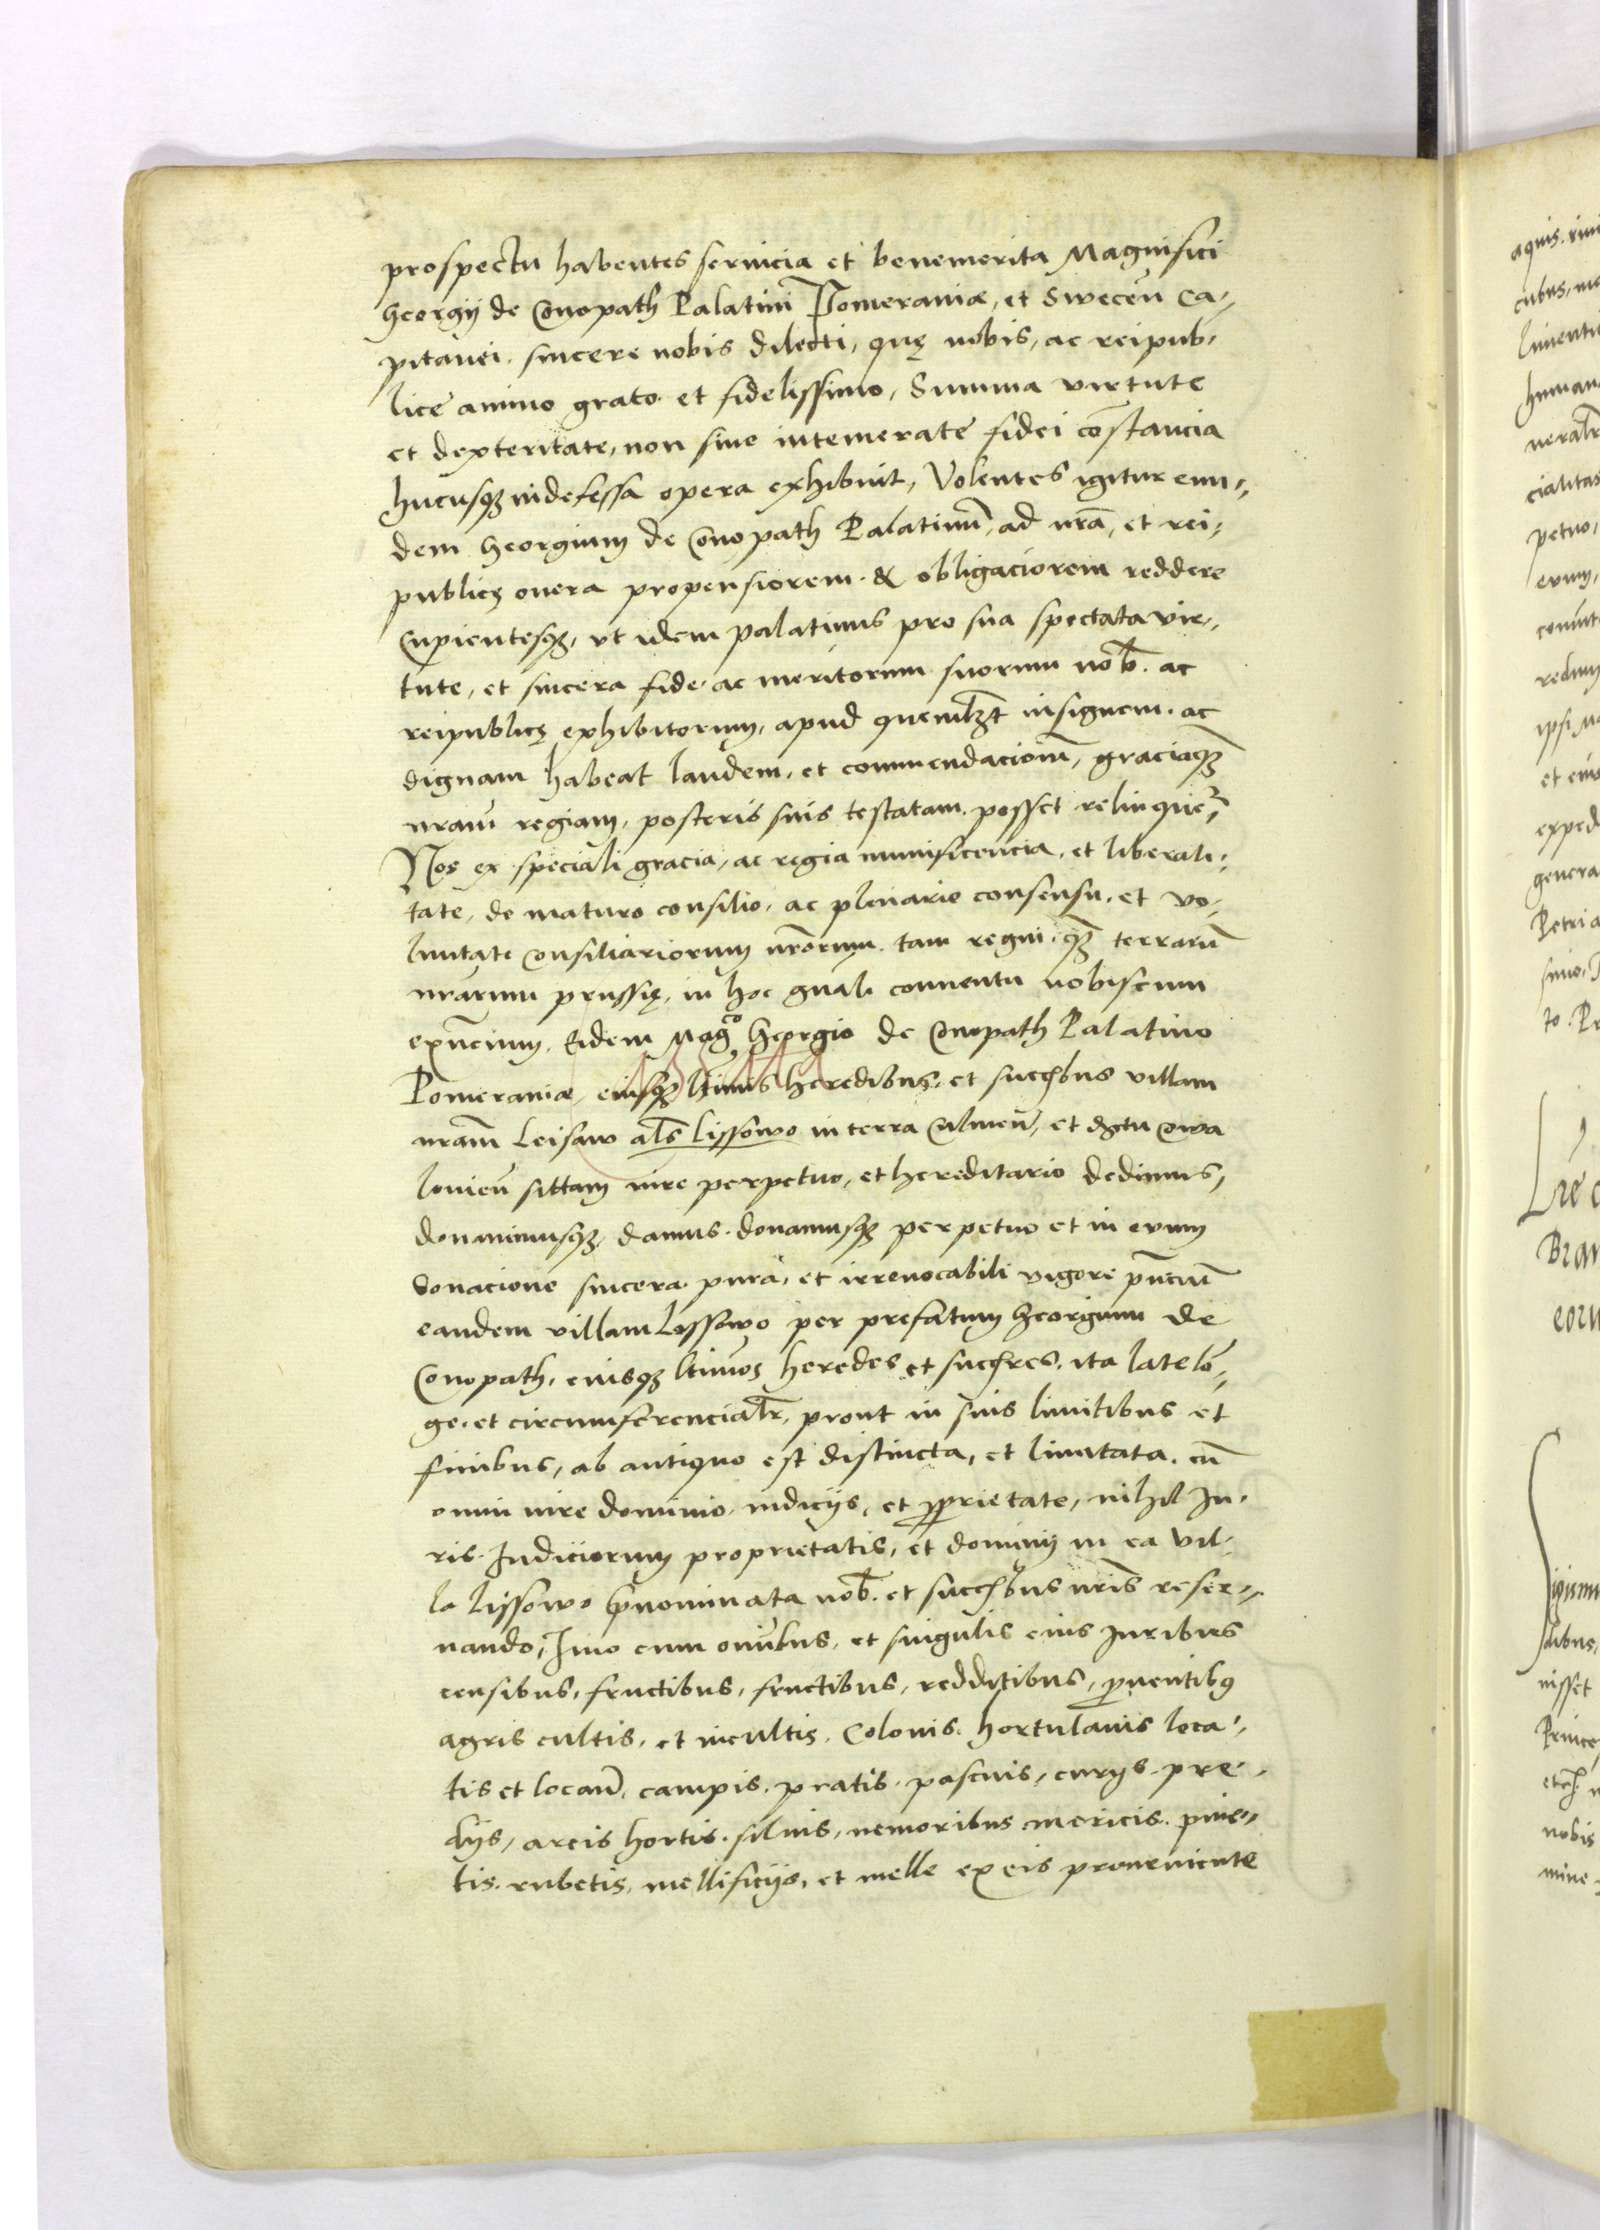 prospectu habentes seruicia et benemerita Magnifici
Georgij de Conopath Palatini Pomeraniæ, et Swecēn Ca-
pitanei. sincere nobis dilecti, quę nobis, ac reipub-
lice animo grato et fidelissimo, Summa virtute
et dexteritate, non sine intemerate fidei cōstancia
hucusq₃ indefessa opera exhibuit, Volentes igitur eun-
dem Georgium de Conopath Palatinū, ad nrā, et rei-
publicę onera propensiorem & obligaciorem reddere
Cupientesq₃, vt idem palatinus pro sua spectata vir-
tute, et sincera fide ac meritorum suorum nob̄. ac
reipublicę exhibitorum, apud quemlꝫt insignem. ac
dignam habeat laudem, et commendacionē, graciāq₃
nram̄ regiam, posteris suis testatam posset relinquer̄,
Nos ex speciali gracia, ac regia munificencia, et liberali-
tate, de maturo consilio, ac plenario consensu, et vo-
luntate Consiliariorum nrōrum tam regni, q̄₃ terrarū
nrarum prussię, in hoc gn̄ali conuentu nobiscum
exn̄cium, Eidem Magco Georgio de Conopath Palatino
Pomeraniæ eiusq₃ ltimis heredibus, et succ̄bus villam
nram̄ Leisaw al̄s Lissowo in terra Culmen̄, et dc̄tu Cowa
lonien̄ sittam iure perpetuo, et hereditario dedimus,
donauimusq₃, damus. donamusq₃ perpetuo et in evum
donacione sincera. pura, et irreuocabili vigore pn̄ciū
eandem villam Lissowo per prefatum Georgium de
Conopath, eiusq₃ ltimos heredes et succ̄res, ita late lō-
ge, et circumferencialr̄, prout in suis limitibus et
finibus, ab antiquo est distincta, et limitata, cū
omni iure dominio, iudicijs, et ꝓprietate, nihil Ju-
ris. Judiciorum proprietatis, et dominij in ea vil-
la Lissowo p̄nominata nob̄. et succ̄bus nrīs reser-
uando, Imo cum om̄ibus, et singulis eius Juribus
censibus, fructibus, fructibus, redditibus, ꝓuentibꝰ
agris cultis, et incultis, Colonis. hortulanis loca-
tis et locan̄, campis, pratis, pascuis, curijs. pre-
dijs, areis hortis. siluis, nemoribus mericis. pine-
tis. rubetis, mellificijs, et melle ex eis proueniente